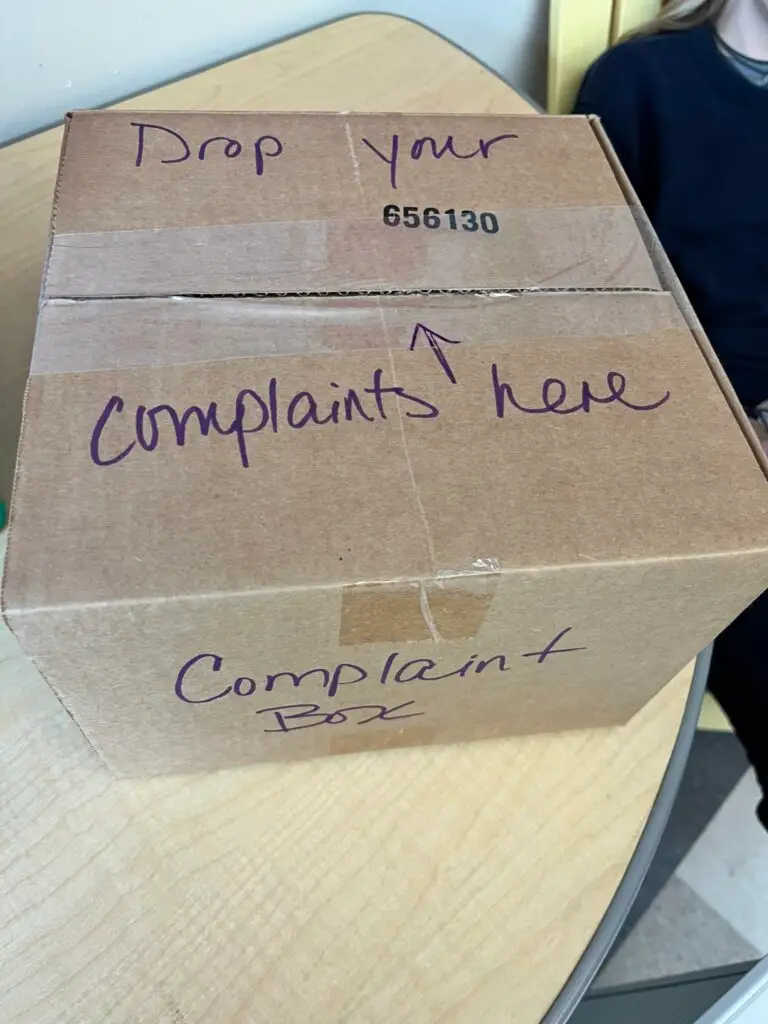 Drop your
656130
↑
complaints here
Complaint
Box